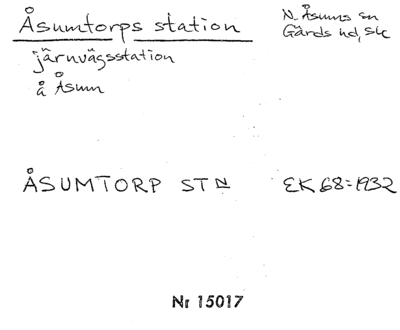 Åsumtorps station
N. Åsums sn
Gärds hd, Sk
järnvägsstation
å Åsum
ÅSUMTORP STN
EK 68:1932
Nr 15017